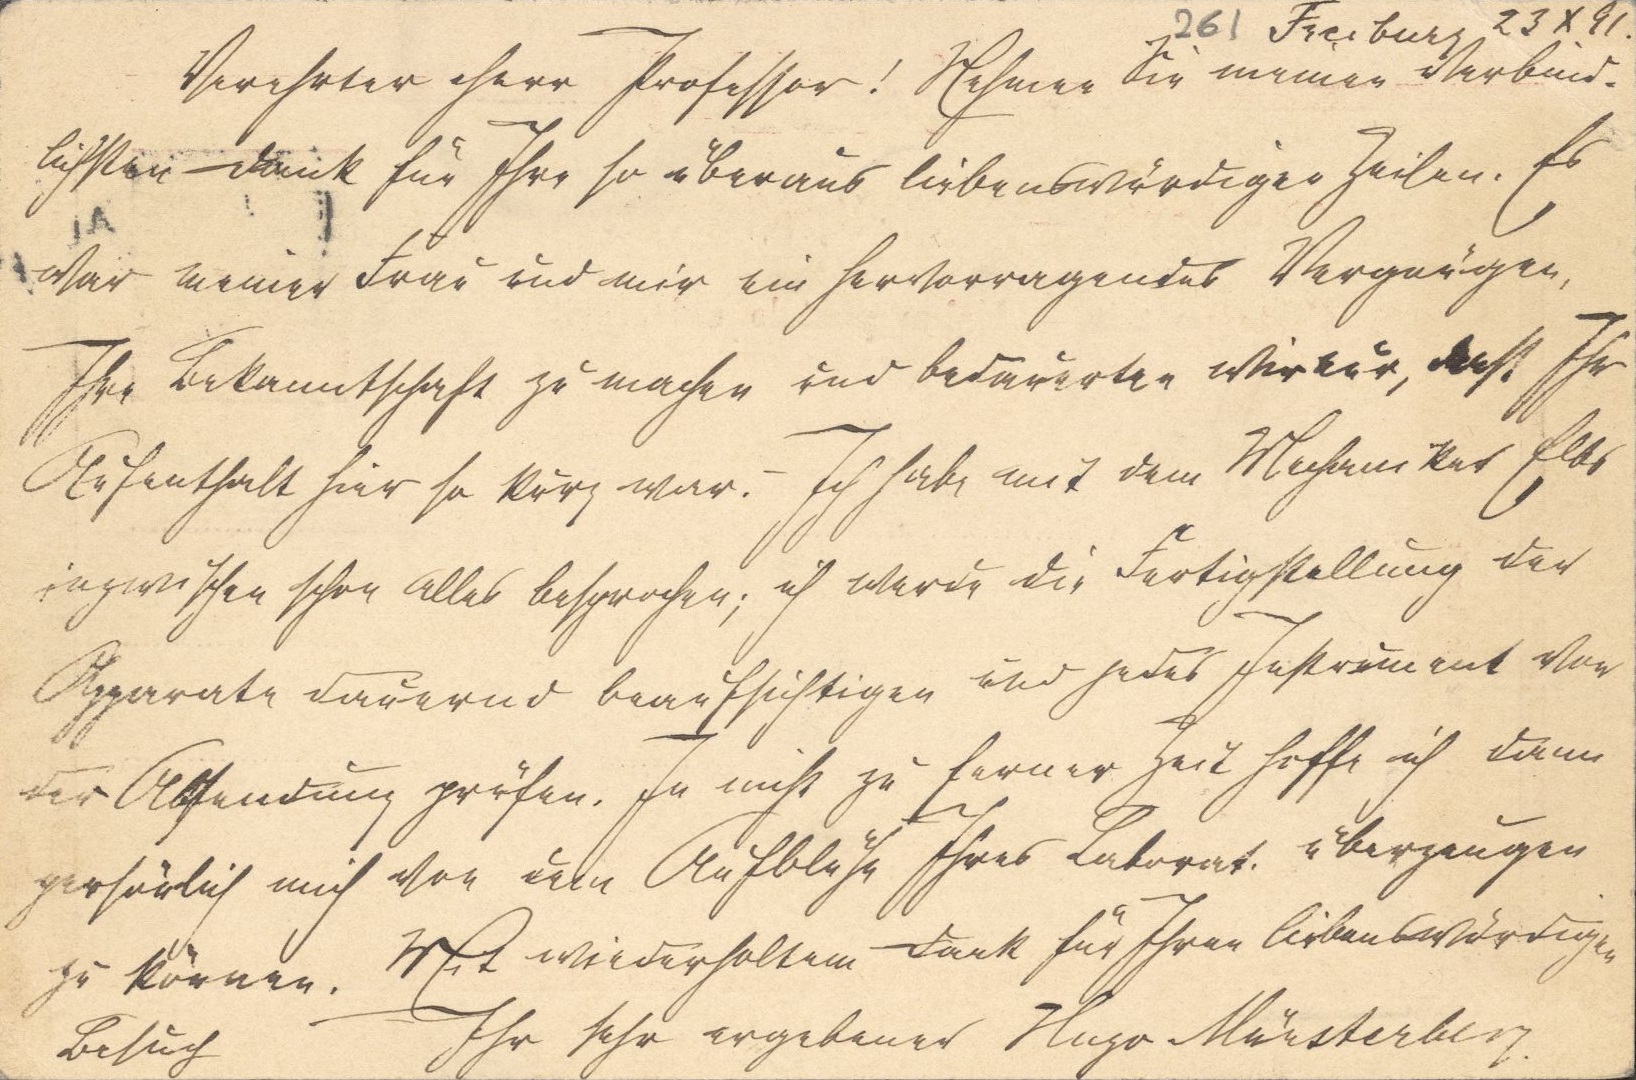 261 Freiburg 23 X 91.
Verehrter Herr Professor! Nehmen Sie meinen verbind-
lichsten Dank für Ihre so überaus liebenswürdigen Zeilen. Es
war meiner Frau und mir ein hervorragendes Vergnügen,
Ihre Bekanntschaft zu machen und bedauerten wir nur, dass Ihr
Aufenthalt hier so kurz war. – Ich habe mit dem Mechaniker Elbs
inzwischen schon alles besprochen; ich werde die Fertigstellung der
Apparate dauernd beaufsichtigen und jedes Instrument vor
der Absendung prüfen. In nicht zu ferner Zeit hoffe ich dann
persönlich mich von dem Aufblühn Ihres Laborat. überzeugen
zu können. Mit wiederholtem Dank für Ihren liebenswürdigen
Besuch Ihr sehr ergebener Hugo Münsterberg.